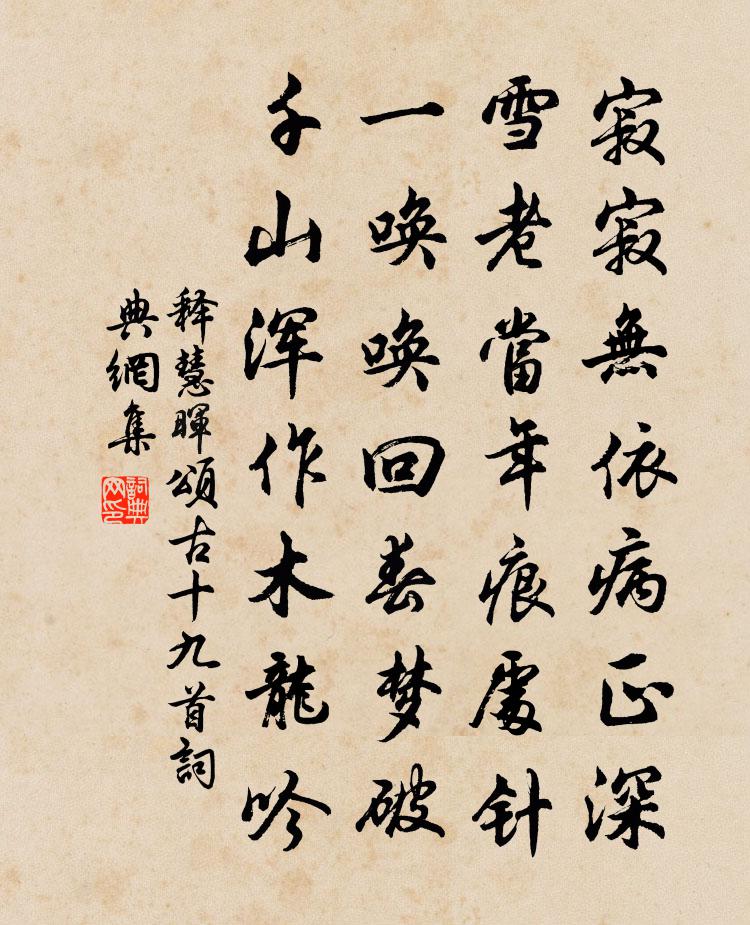 寂寂無依病正深
雪老當年痕處针
一唤唤回春梦破
千山浑作木龍吟
释慧暉頌古十九首詞
典網集
詞典網印